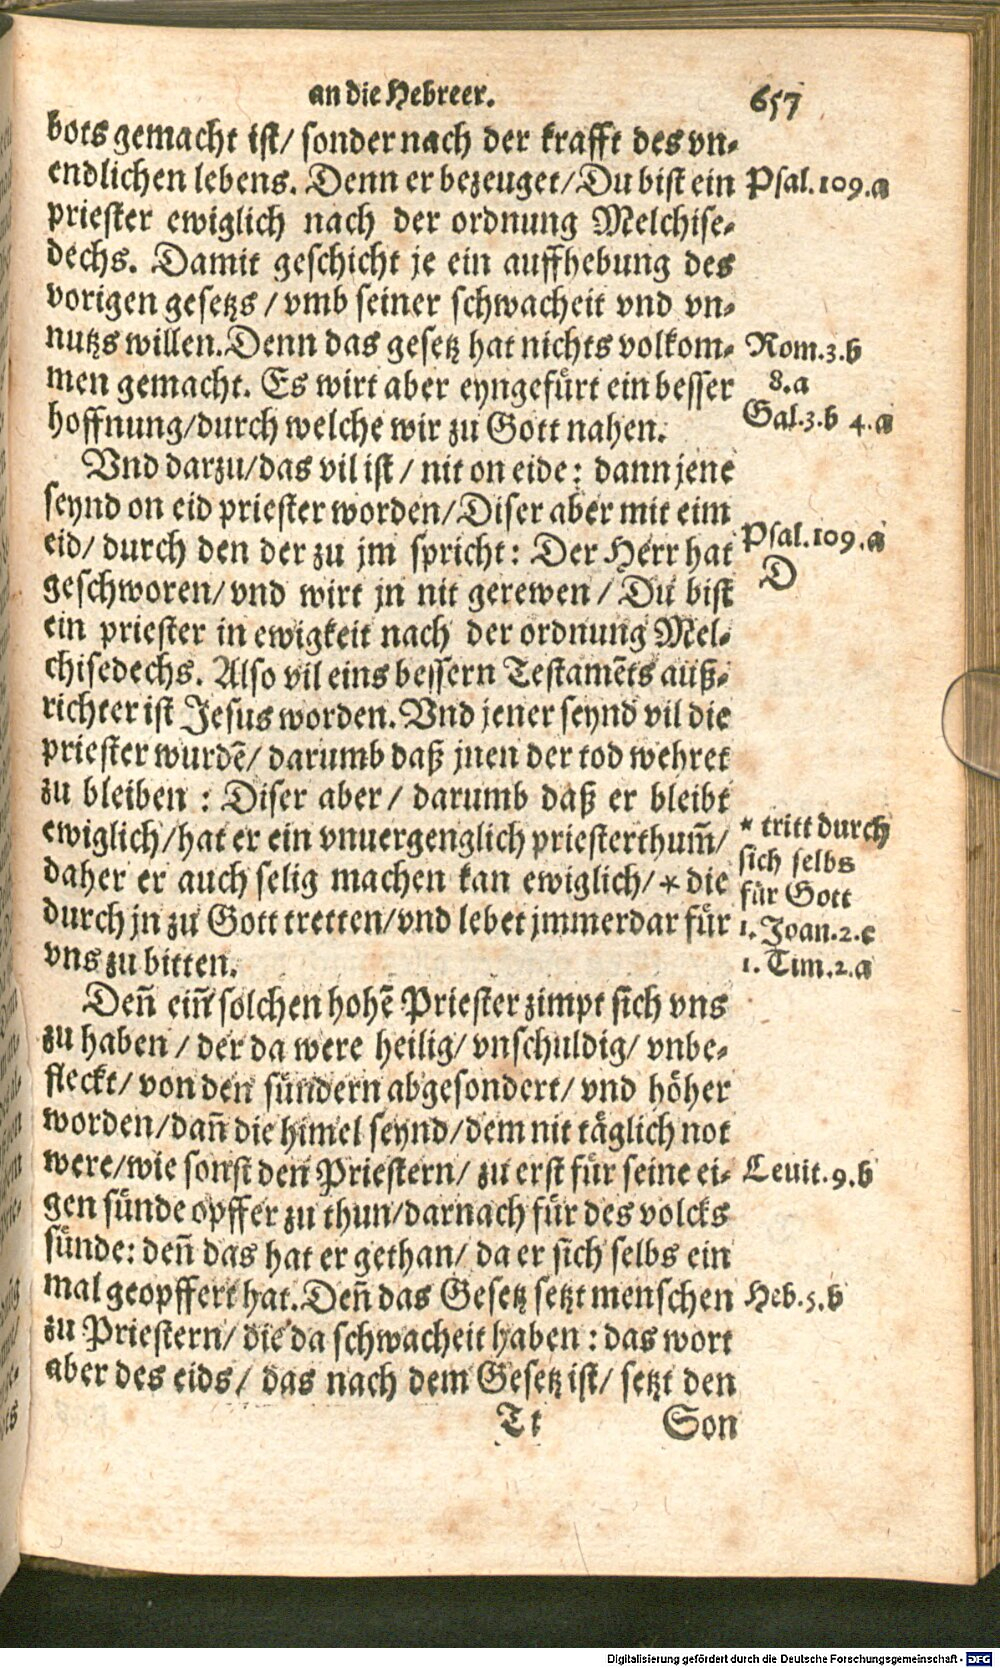 an die Hebreer. 657
bots gemacht ist/ sonder nach der krafft des vn-
endlichen lebens. Denn er bezeuget/Du bist ein
Psal.109.a
priester ewiglich nach der ordnung Melchise-
dechs. Damit geschicht je ein auffhebung des
vorigen gesetzs / vmb seiner schwacheit vnd vn-
nutzs willen. Denn das gesetz hat nichts volkom-
Rom.3.b
men gemacht. Es wirt aber eyngefürt ein besser
8.a
hoffnung/durch welche wir zu Gott nahen.
Gal.3.b 4.a
Vnd darzu/das vil ist / nit on eide: dann jene
seynd on eid priester worden/Diser aber mit eim
eid/ durch den der zu jm spricht: Der Herr hat
Psal.109.a
geschworen/vnd wirt jn nit gerewen / Du bist
D
ein priester in ewigkeit nach der ordnung Mel-
chisedechs. Also vil eins bessern Testamēts auß-
richter ist Jesus worden. Vnd jener seynd vil die
priester wurdē/ darumb daß jnen der tod wehret
zu bleiben : Diser aber/ darumb daß er bleibt
ewiglich/hat er ein vnuergenglich priesterthum̄/
* tritt durch
sich selbs
daher er auch selig machen kan ewiglich/* die
für Gott
durch jn zu Gott tretten/vnd lebet jmmerdar für
1. Joan.2.c
vns zu bitten.
1. Tim.2.a
Den̄ ein̄ solchen hohē Priester zimpt sich vns
zu haben / der da were heilig/ vnschuldig/ vnbe-
fleckt/ von den sündern abgesondert/ vnd höher
worden/dan̄ die himel seynd/dem nit täglich not
were/wie sonst den Priestern/ zu erst für seine ei-
Leuit.9.b
gen sünde opffer zu thun/darnach für des volcks
sünde: den̄ das hat er gethan/ da er sich selbs ein
mal geopffert hat. Den̄ das Gesetz setzt menschen
Heb.5.b
zu Priestern/ die da schwacheit haben : das wort
aber des eids/ das nach dem Gesetz ist/ setzt den
Tt Son
Digitalisierung gefördert durch die Deutsche Forschungsgemeinschaft - DFG